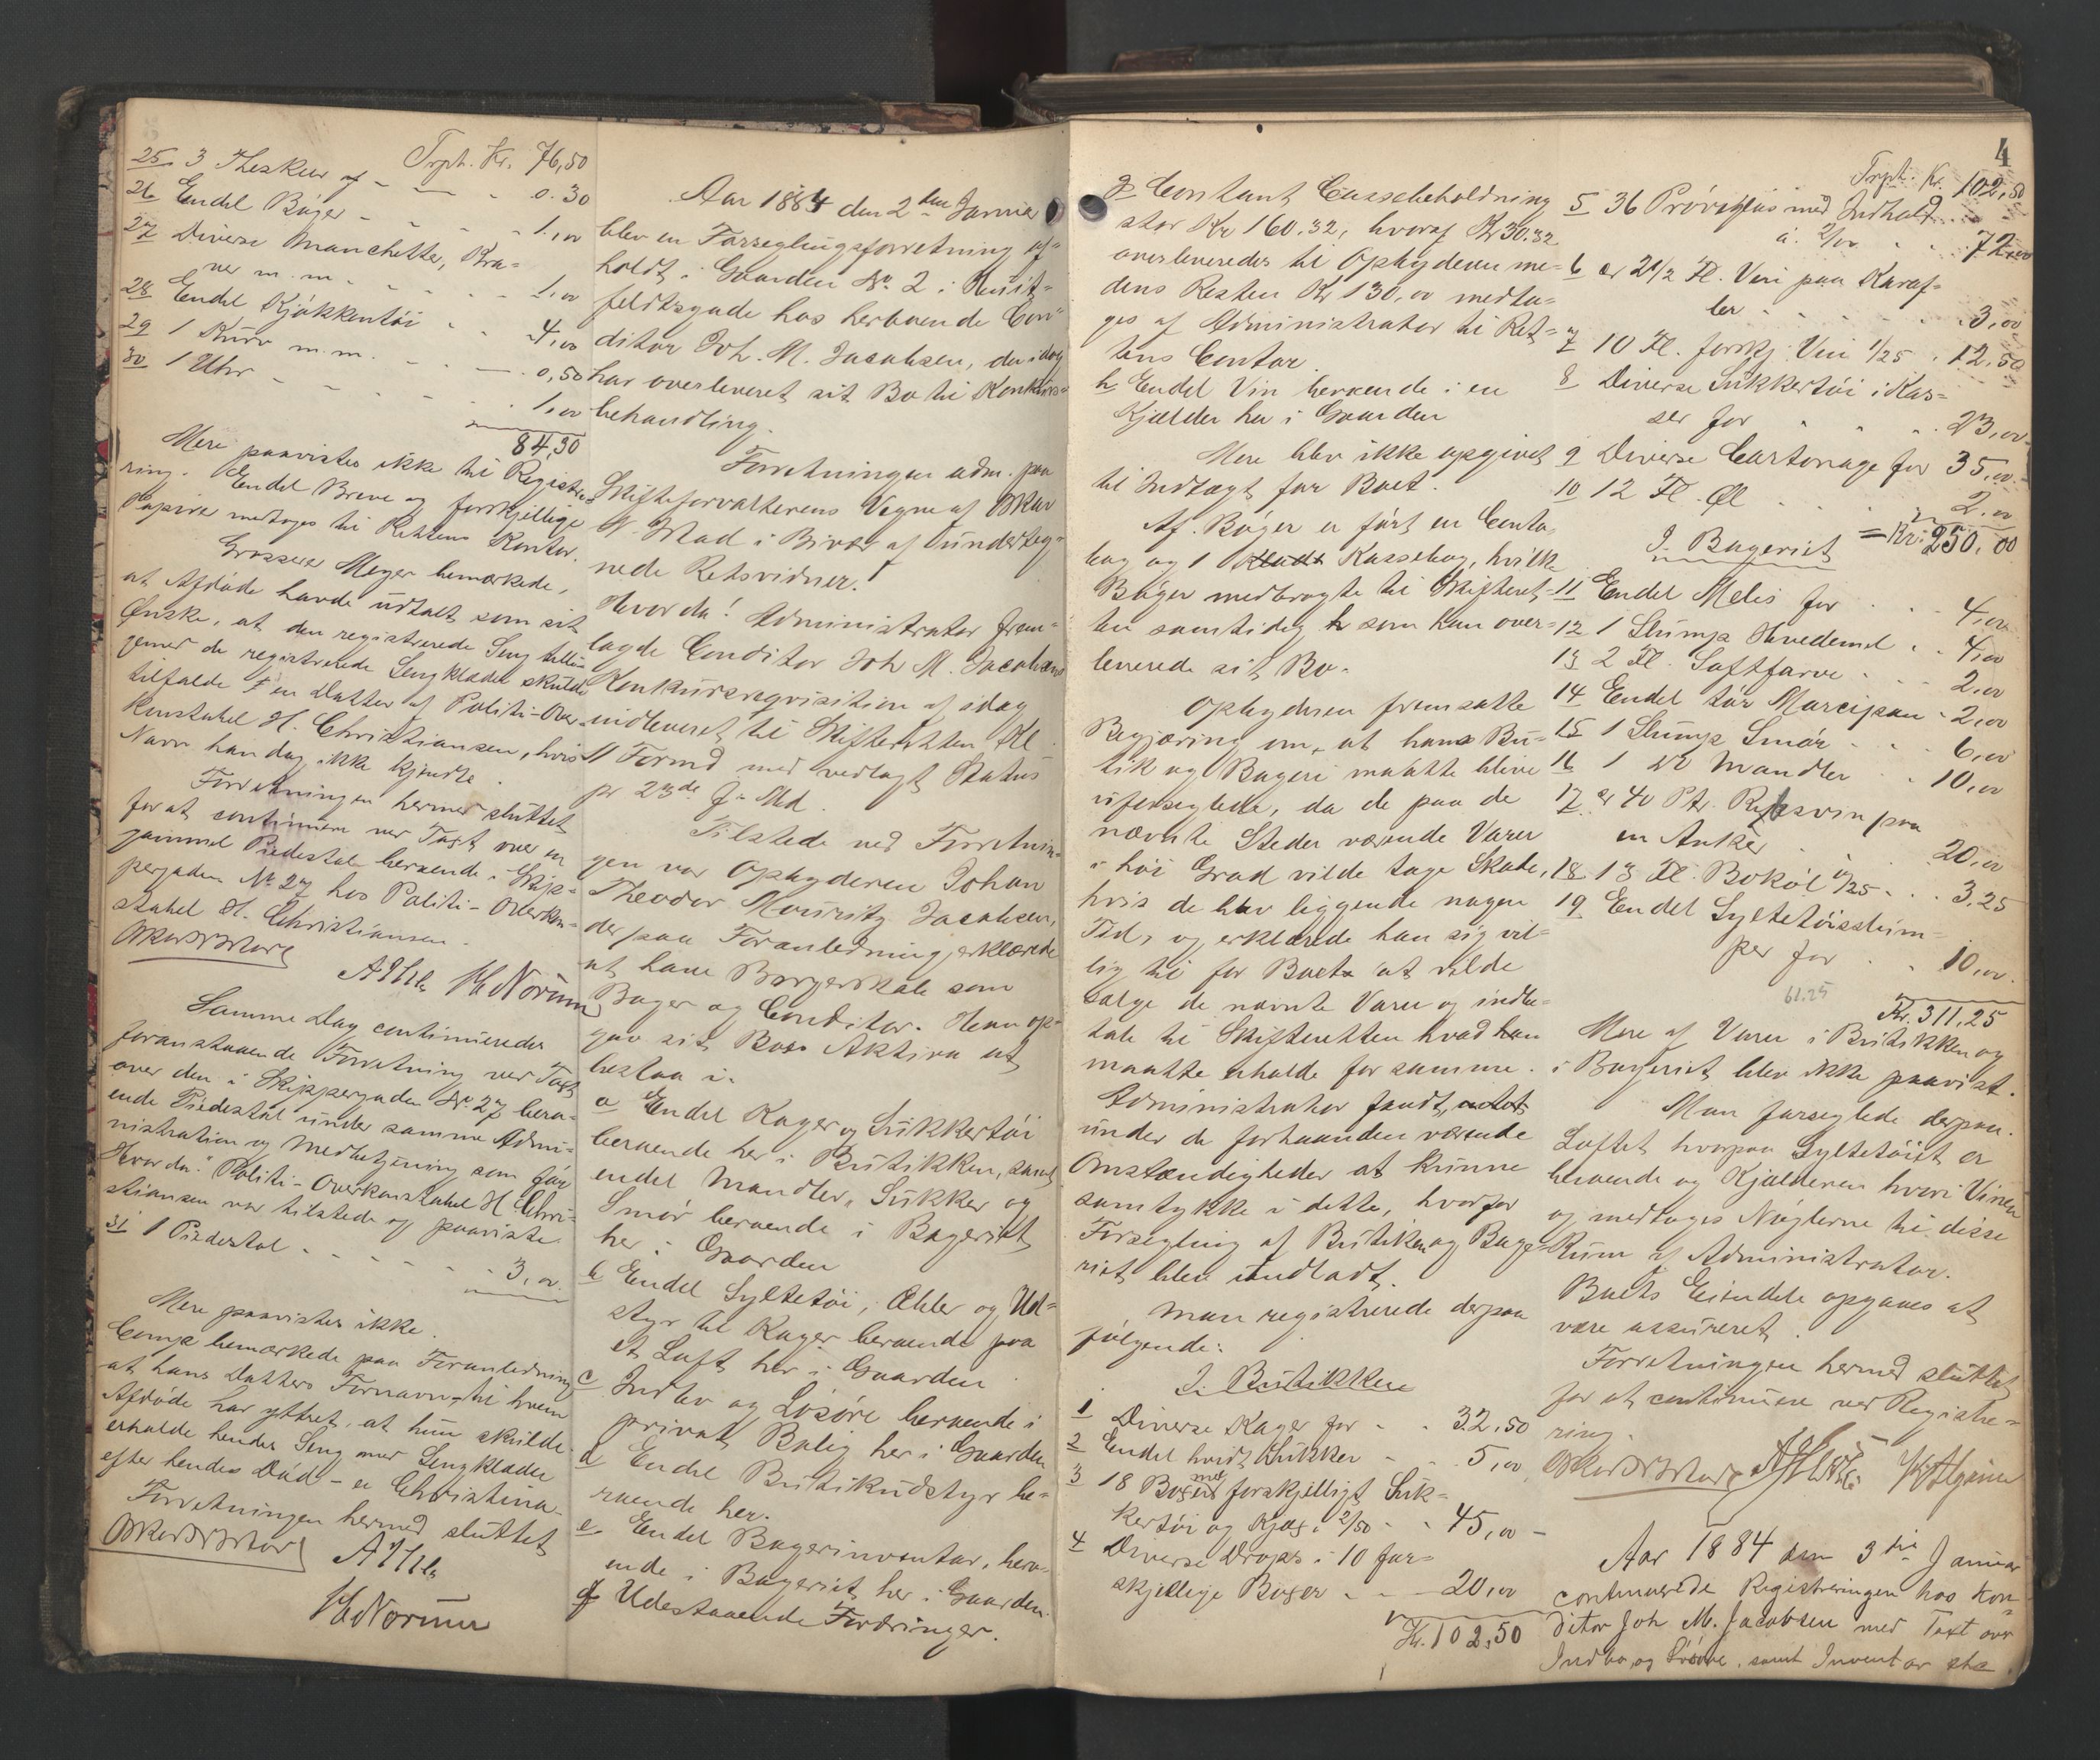 Trpt. Kr. 76,50
25. 3 Theskeer af - - - 0.30
26 Endel Bøger - - - 1,00
27 Diverse Manchetter, Kra=
ver m.m. - - - 1,00
28 Endel Kjøkkentøi - - 4,00
29 1 Kurv m.m. - - 0,50
30 1 Uhr - - - 1,00
84,30
Mere paavistes ikke til Registre=
ring. Endel Breve og forskjellige
Papirer medtoges til Rettens Kontor.
Grosserer Meyer bemærkede,
at Afdøde havde udtalt som sit
Ønske, at den registrerede Seng tillige
med de registrerede Sengklæder skulde
tilfalde en Datter af Politi-Over-
konstabel H. Christiansen, hvis
Navn han dog ikke kjendte.
Forretningen hermed sluttet
for at continuere ved Taxt over en
gammel Piedestal beroende i Skip=
pergaden No 27 hos Politi-Overkon=
stabel H. Christiansen.
Samme Dag continueredes
foranstaaende Forretning ved Taxt
over den i Skippergaden No 27 bero=
ende Piedestal under samme Admi=
nistration og Medbetjening som før
Hvorda! Politi-Overkonstabel H Chri=
stiansen var tilstede og paaviste
31 1 Piedestal - - - - 3,00
Mere paavistes ikke.
Comp bemærkede paa Foranledning
at hans Datters Fornavn, til hvem
Afdøde har yttret, at hun skulde
erholde hendes Seng med Sengklæder
efter hendes Død - er Christina.
Forretningen hermed sluttet
Aar 1884 den 2den Januar
blev en Forseglingsforretning af=
holdt i Gaarden No. 2 i Huit=
feldtsgade hos herboende Con=
ditor Joh. M. Jacobsen, der idag
har overleveret sit Bo til Konkurs=
behandling.
Forretningen adm. paa
Skifteforvalterens Vegne af Oskar
i Bivær af underteg=
nede Retsvidner.
Hvorda! Administrator frem=
lagde Conditor Joh M. Jacobsens
Konkursreqvisition af idag
indleveret til Skifteretten Kl.
11 Formd med vedlagt Status
pr 23de f. Md.
Tilstede ved Forretnin=
gen var Opbyderen Johan
Theodor Mouritz Jacobsen,
der paa Foranledning erklærede
at have Borgerskab som
Bager og Conditor. Han op=
gav sit Boes Aktiva at
bestaa i:
a Endel Kager og Sukkertøi
beroende her i Butikken, samt
endel Mandler, Sukker og
Smør beroende i Bageriet
her i Gaarden
b Endel Syltetøi, Æbler og Ud=
styr til Kager beroende paa
et Loft her i Gaarden
c Indbo og Løsøre beroende i
privat Bolig her i Gaarden
d Endel Butikudstyr be=
roende her.
e Endel Bagerinventar, bero=
ende i Bageriet her i Gaarden.
f Udestaaende Fordringer.
4
g Contant Cassebeholdning
stor Kr 160.32, hvoraf Kr 30.32
overleveredes til Opbyderen me=
dens Resten Kr 130,00 medto=
ges af Administrator til Ret=
tens Contor.
h Endel Vin beroende i en
Kjælder her i Gaarden
Mere blev ikke opgivet
til Indtægt for Boet.
Af Bøger er ført en Conto
bog og 1 Kassebog, hvilke
Bøger medbragte til Skifteret=
ten samtidig som han over=
leverede sit Bo.
Opbyderen fremsatte
Begjæring om, at hans Bu=
tik og Bageri maatte blive
uforseglede, da de paa de
nævnte Steder værende Varer
i høi Grad vilde tage Skade,
hvis de blev liggende nogen
Tid, og erklærede han sig vil=
lig til for Boet at vilde
sælge de nævnte Varer og indbe=
tale til Skifteretten hvad han
maatte erholde for samme.
Administrator fandt,
under de forhaanden værende
Omstændigheder at kunne
samtykke i dette, hvorfor
Forsegling af Butiken og Bage=
riet blev undladt.
Man registrerede derpaa
følgende:
I Butikken
1 Diverse Kager for - - 32,50
2 Endel hvidt Sukker - - 5,00
3 18 Boxer med forskjelligt Suk=
kertøi og Kjæx à 2/50 - - 45,00
4 Diverse Drops i 10 for=
skjellige Boxer - - 20,00
Kr. 102,50
Trpt. Kr. 102,50
5 36 Prøveglas med Indhold
à 2/00 - - 72,00
6 ca 2 1/2 Fl. Vin paa Karaf=
ler - - - 3,00
7 10 Fl. forskj. Vin 1/25 . 12,50
8 Diverse Sukkertøi i Kas=
ser for - - - 23,00
9 Diverse Cartonage for 35,00
10 12 Fl. Øl - - 2,00
= Kr. 250,00
I Bageriet
11 Endel Melis for - - 4,00
12 1 Slump Hvedemel - - 4,00
13 2 Fl. Saftfarve - - 2,00
14 Endel tør Marcipan - 2,00
15 1 Slump Smør - - 6,00
16 1 Mandler - - 10,00
17 ca 40 Ptr. Ribsvin paa
en Anker - - 20,00
18 13 Fl. Bokøl à /25 - - 3,25
19 Endel Syltetøisslum=
per for - - 10,00
61.25
Kr. 311,25
Mere af Varer i Butikken og
i Bageriet blev ikke paavist.
Man forseglede derpaa
Loftet hvorpaa Syltetøiet er
beroende og Kjælderen hvori Vinen
og medtoges Nøglerne til disse
Rum af Administrator.
Boets Eiendele opgaves at
være assureret.
Forretningen hermed sluttet
for at continuere ved Registre=
ring.
Aar 1884 den 3die Januar
continuerede Registreringen hos Kon=
ditor Joh M. Jacobsen med Taxt over
Indbo og Løsøre, samt Inventar